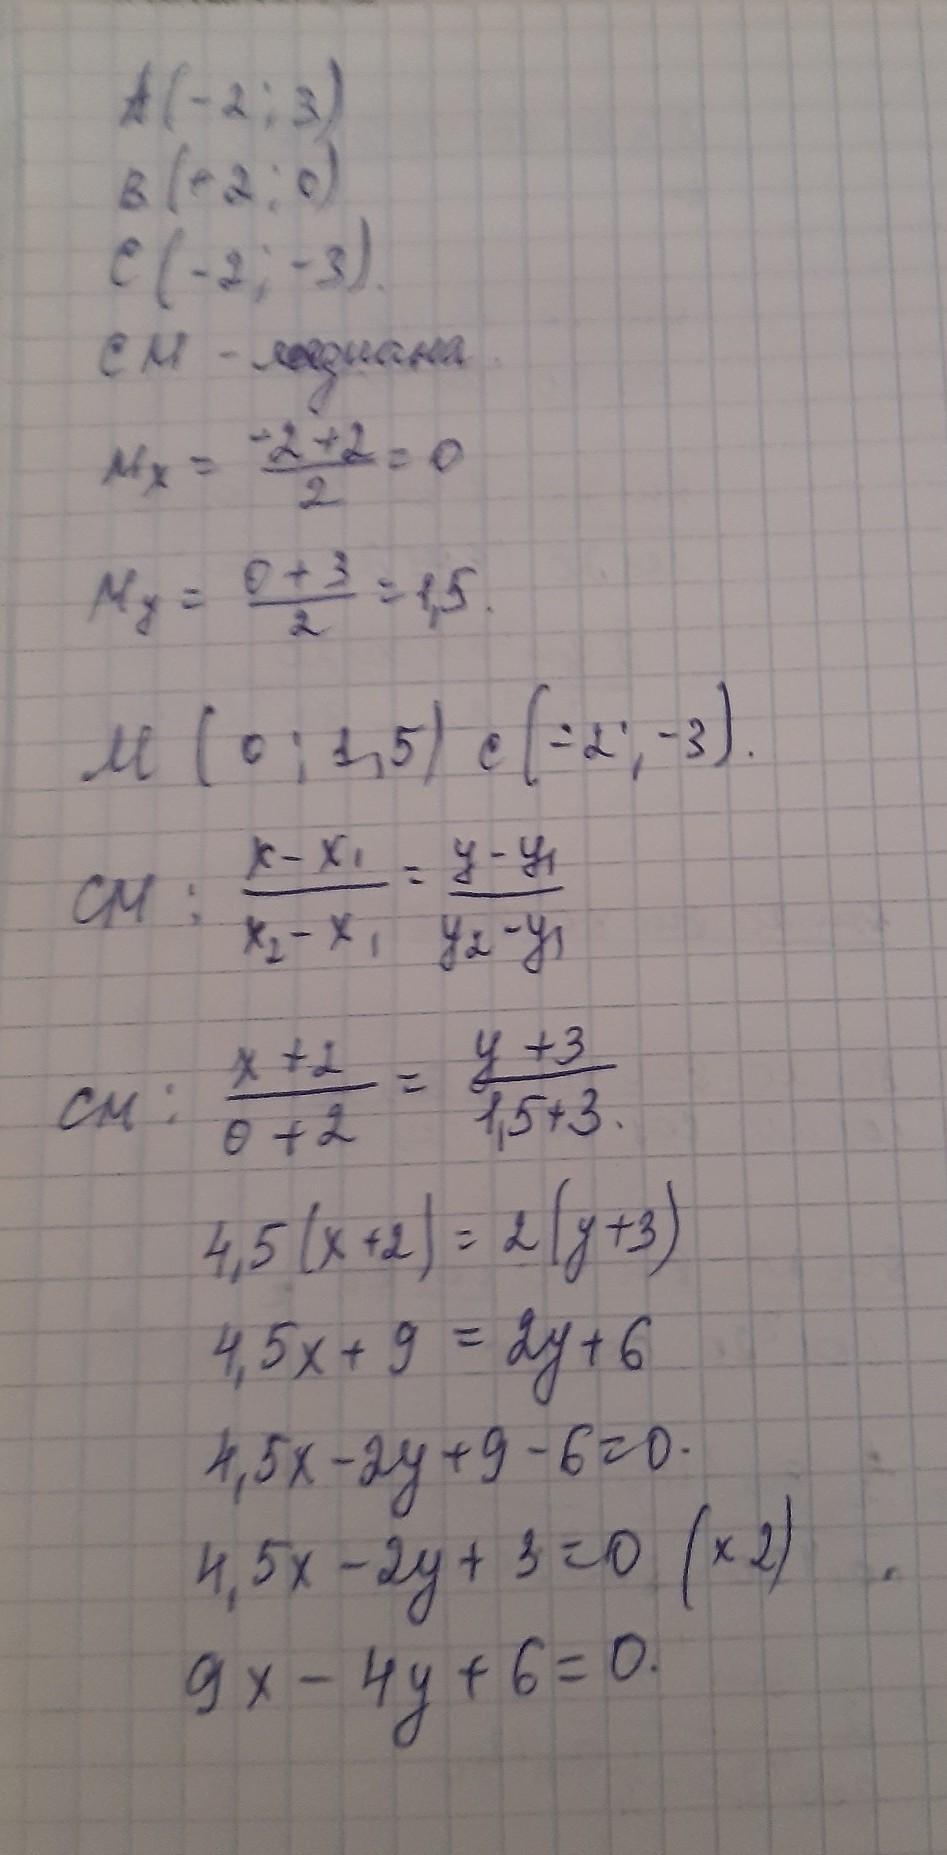 A (-2; 3)
B (+2; 0)
C (-2; -3).
CM - медиана.
Mx = (-2+2)/2 = 0
My = (0+3)/2 = 1,5.
M (0; 1,5) C (-2; -3).
CM: (x-x₁)/(x₂-x₁) = (y-y₁)/(y₂-y₁)
CM: (x+2)/(0+2) = (y+3)/(1,5+3).
4,5(x+2) = 2(y+3)
4,5x+9 = 2y+6
4,5x-2y+9-6=0.
4,5x-2y+3=0 (x2)
9x-4y+6=0.